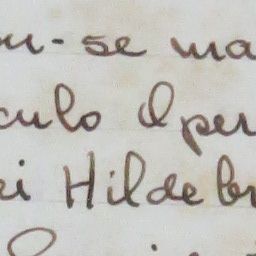 ou-se ma
culo Oper
ei Hildebr